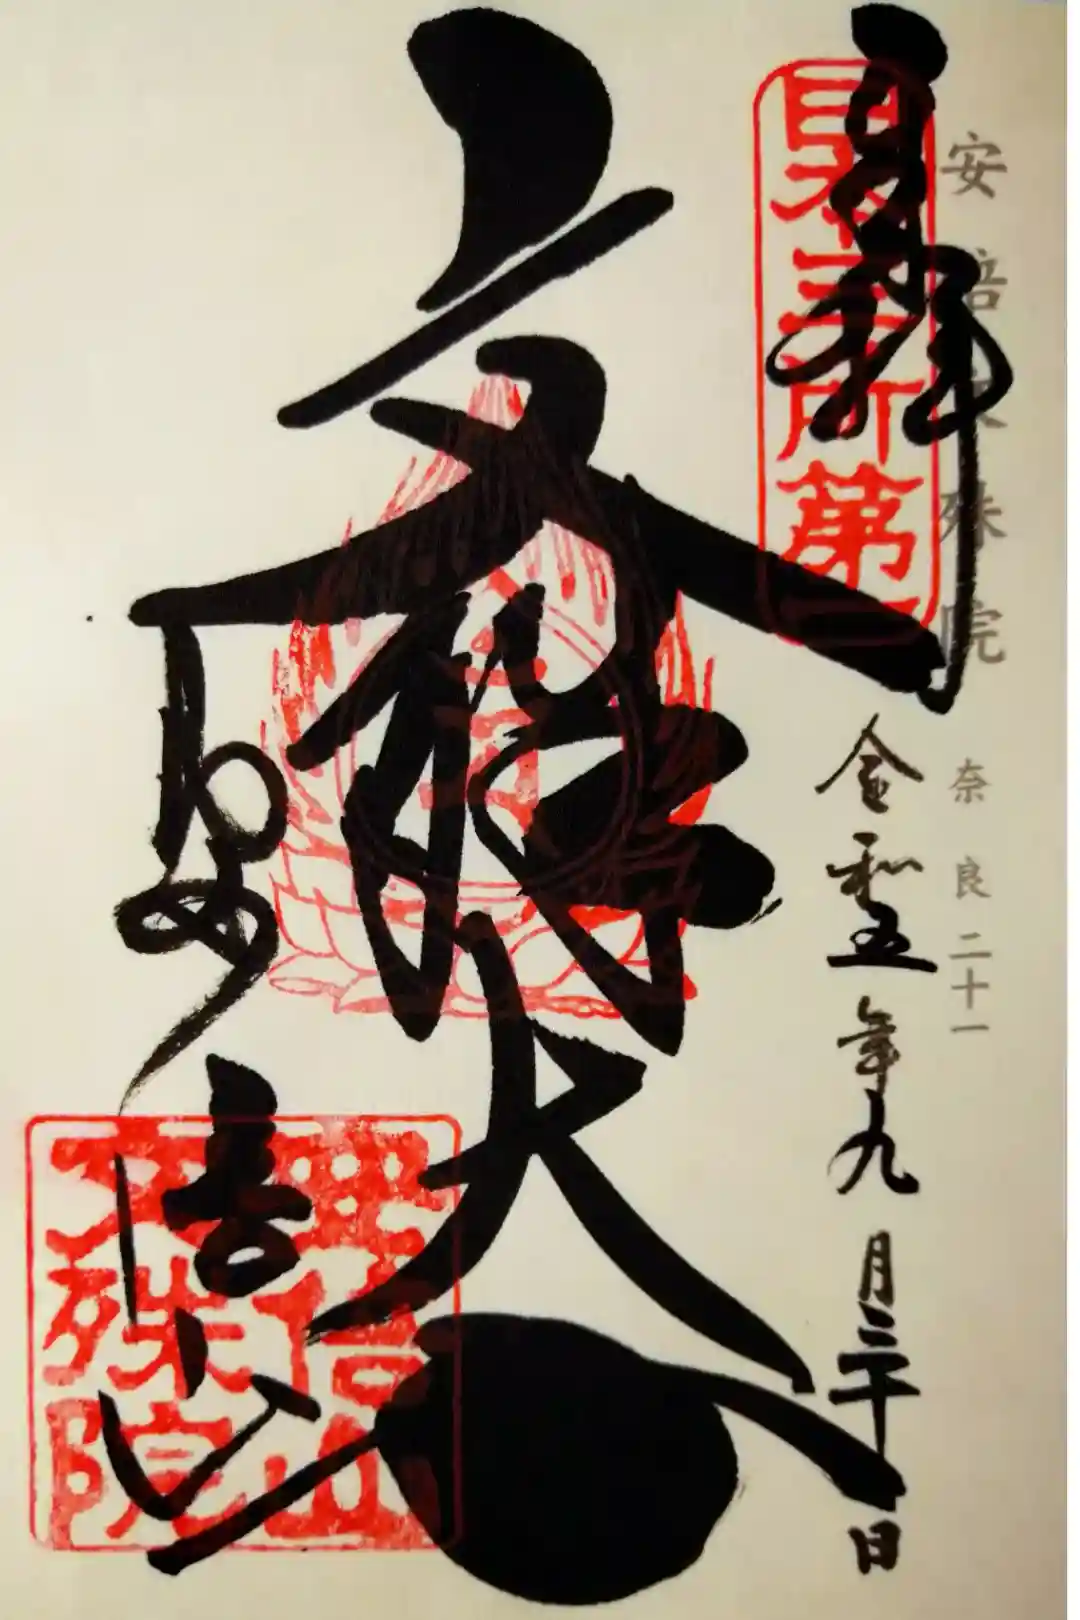 奉拝
日本三所第一
安倍文殊院
奈良二十一
令和五年九月二十日
文殊大
安倍山
文殊院